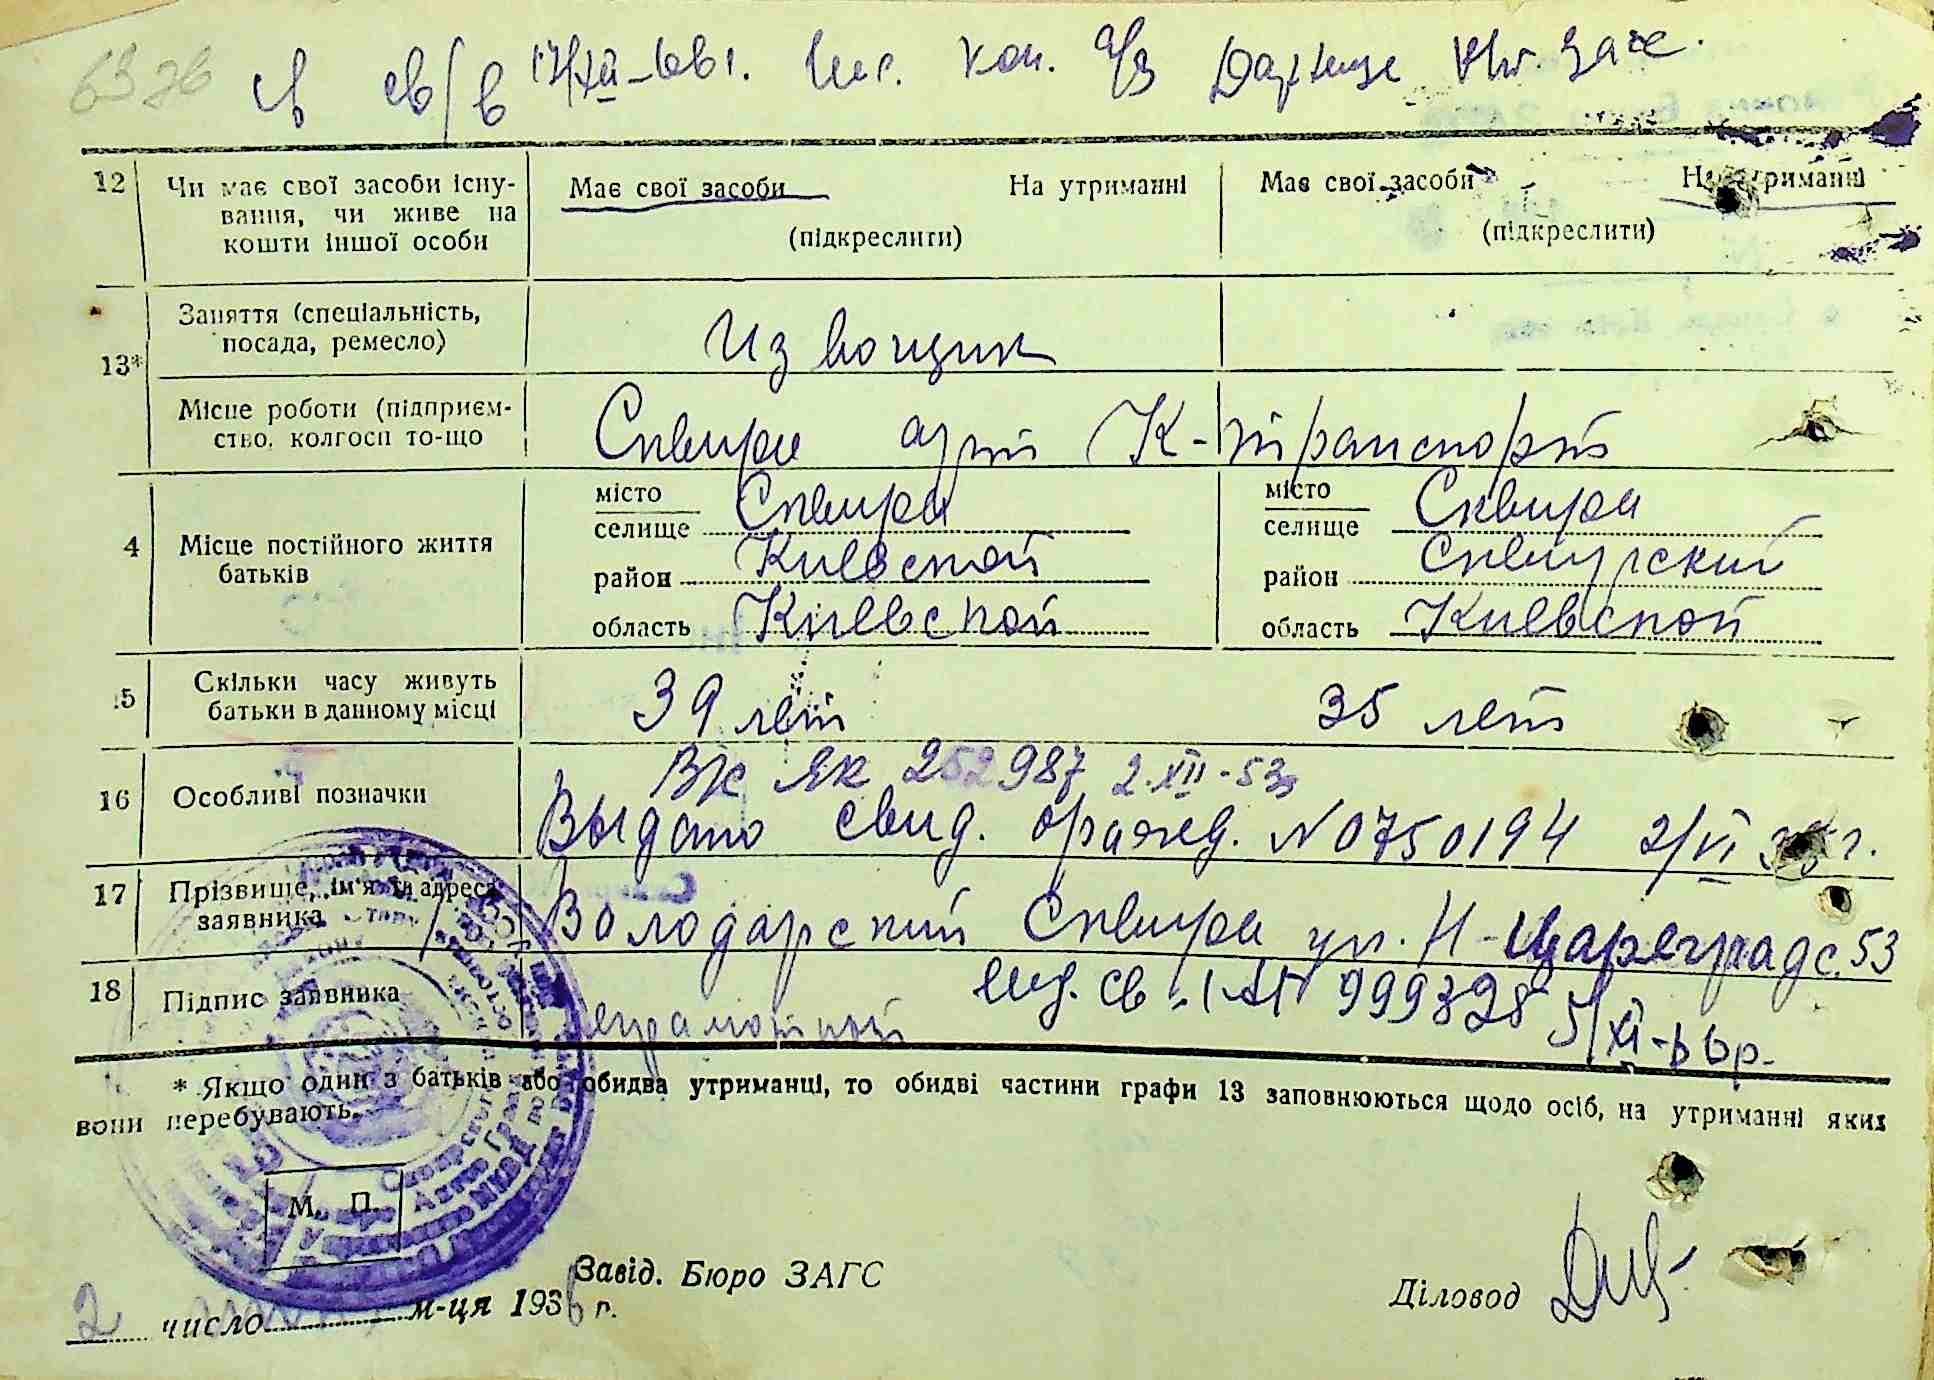 6326
св/в 17/XII-66 г. Загс.
12 Чи має свої засоби існу-
вання, чи живе на
кошти іншої особи
Має свої засоби На утриманні
(підкреслити)
Має свої засоби На утриманні
(підкреслити)
13*
Заняття (спеціальність,
посада, ремесло)
Извощик
Місце роботи (підприєм-
ство, колгосп то-що
Сквира арт К-транспорт
4 Місце постійного життя
батьків
місто
селище Сквира
район Киевской
область Киевской
місто
селище Сквира
район Сквирский
область Киевской
15 Скільки часу живуть
батьки в данному місці
39 лет 35 лет
16 Особливі позначки
ЯК 252987 2.XII-53
Выдано свид. о рожд. N0750194 2/VI г.
17 Прізвище, ім'я та адреса
заявника
Володарский Сквира ул. Н-Цареградс. 53
18 Підпис заявника
неграмотный
св. 999328 5/XI
* Якщо один з батьків або обидва утриманці, то обидві частини графи 13 заповнюються щодо осіб, на утриманні яких
вони перебувають.
М. П.
Завід. Бюро ЗАГС
Діловод
2 число м-ця 1936 г.